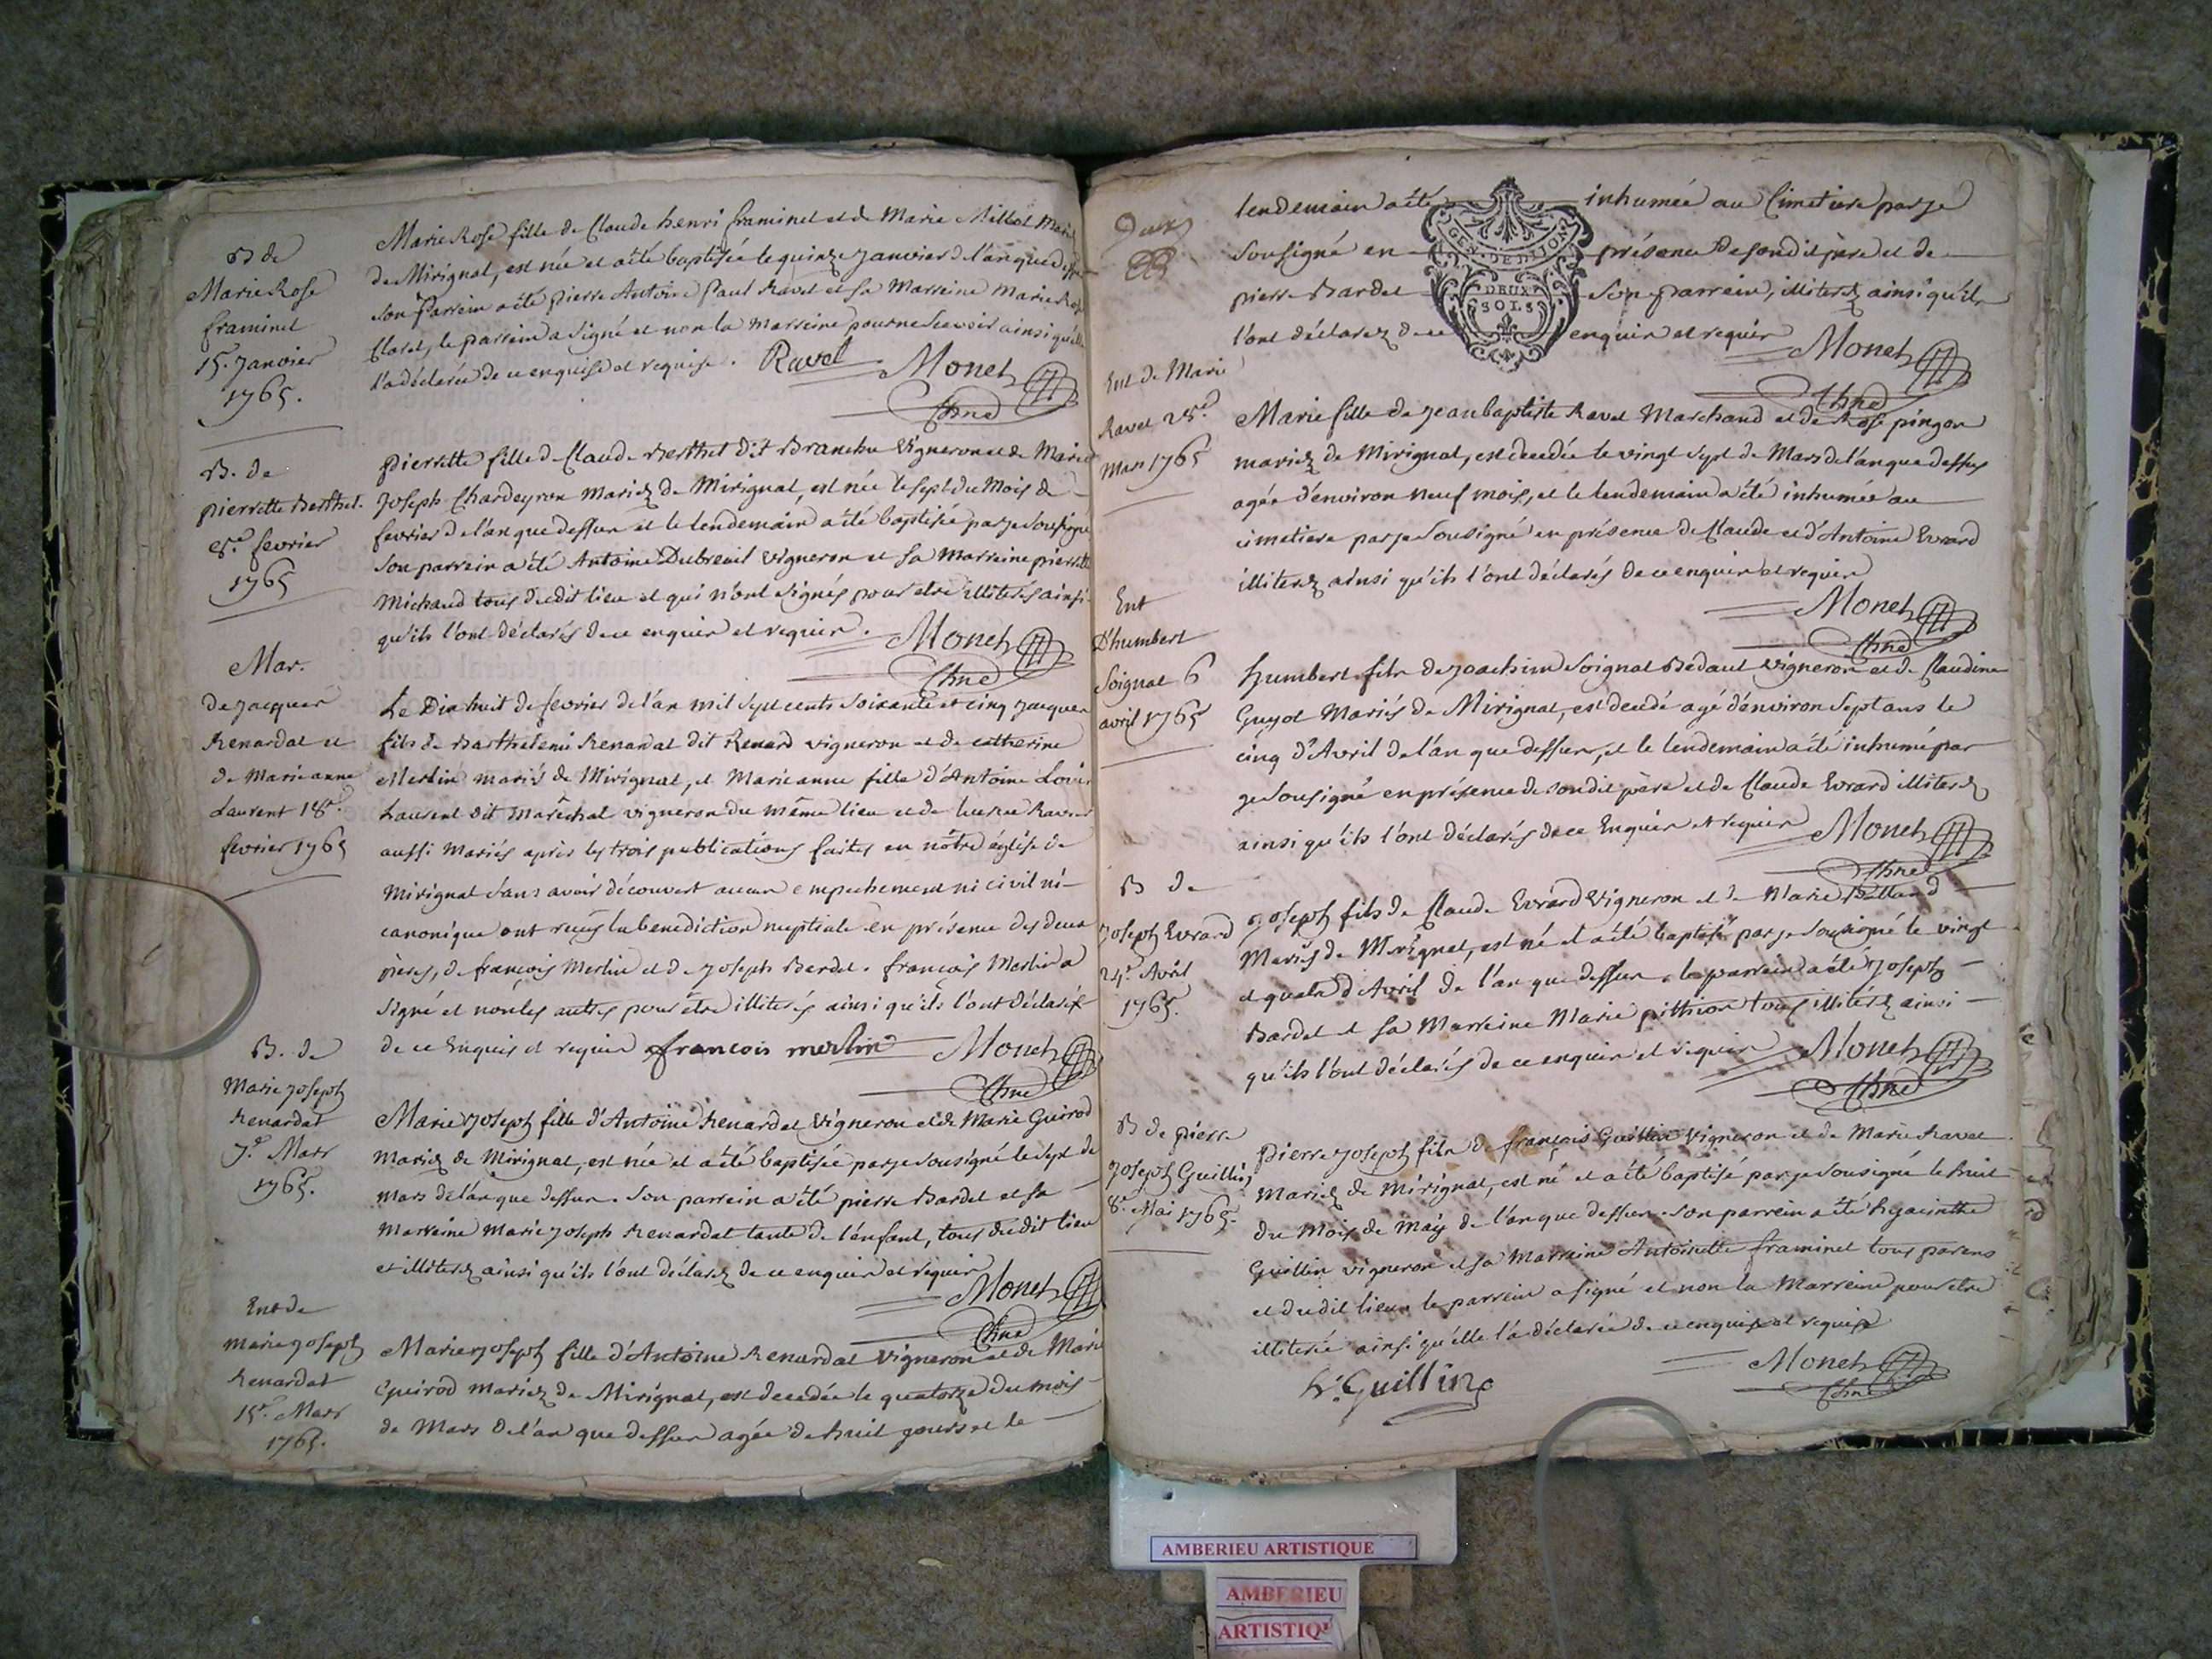 B de
Marie Rose
framinet
15. Janvier
1765.
Marie Rose fille de Claude henri framinet et de Marie Millet Mariés
de Mirignat, est née et a été baptisée le quinze janvier de l'an que dessus
son Parrein a été pierre Antoine Paul Ravet et sa Marreine Marie Rose
Claret, le parrein a signé et non la marreine pour ne scavoir ainsi qu'elle
l'a déclarée de ce enquise et requise. Ravet Monet
Chne
B. de
pierrette Berthet.
8.e fevrier
1765
pierrette fille de Claude Berthet dit Branche Vigneron et de Marie
Joseph Chardeyron Mariez de Mirignat, est née le sept du Mois de
fevrier de l'an que dessus et le lendemain a été baptisée par je sousigné
son parrein a été Antoine Dubreuil vigneron et sa marreine pierrette
Michaud tous dudit lieu et qui n'ont signés pour etre illiterés ainsi
qu'ils l'ont déclarés de ce enquis et requis. Monet
Chne
Mar.
de jacques
Renardat et
de Marie anne
Laurent 18.e
fevrier 1765
Le Dix huit de fevrier de l'an mil sept cents soixante et cinq jacques
fils de Barthelemi Renardat dit Renard vigneron et de catherine
Merlin mariés de Mirignat, et Marie anne fille d'Antoine Louis
Laurent dit Maréchal vigneron du même lieu et de Ravet
aussi Mariés après les trois publications faites en nôtre église de
Mirignat sans avoir découvert aucun empechement ni civil ni
canonique ont reçus la benediction nuptiale en présence des deux
pères, de françois Merlin et de joseph Bardet. françois Merlin a
signé et non les autres pour être illiterés ainsi qu'ils l'ont déclarés
de ce Enquis et requis francois merlin Monet
Chne
B. de
Marie joseph
Renardat
7.e Mars
1765.
Marie joseph fille d'Antoine Renardat Vigneron et de Marie Guirod
mariez de Mirignat, est née et a été baptisée par je sousigné le sept de
mars de l'an que dessus. son parrein a été pierre Bardet et sa
Marreine Marie joseph Renardat tante de l'enfant, tous dudit lieu
et illiterez ainsi qu'ils l'ont déclarez de ce enquis et requis
Monet
Chne
Ent de
marie joseph
Renardat
15.e Mars
1765.
Marie joseph fille d'Antoine Renardat Vigneron et de Marie
Guirod mariez de Mirignat, est decedée le quatorze du mois
de Mars de l'an que dessus agée de huit jours et le
Deux
lendemain a été inhumée au Cimetiere par je
sousigné en présence de sondit père et de
pierre Bardet son parrein, illiterez ainsi qu'ils
l'ont déclarez de ce enquis et requis Monet
Chne
GEN. DE DIJON
DEUX
SOLS
Ent de Marie
Ravet 28.e
Mars 1765
Marie fille de Jean baptiste Ravet Marchand et de Rose pingon
mariez de Mirignat, est decedée le vingt sept de Mars de l'an que dessus
agée d'environ neuf mois, et le lendemain a été inhumée au
cimetiere par je sousigné en présence de Claude et d'Antoine Evrard
illiterez ainsi qu'ils l'ont déclarés de ce enquis et requis
Monet
Chne
Ent
D'humbert
Soignat 6
avril 1765
humbert fils de joachim Soignat Bedaut vigneron et de Claudine
Guyot Mariés de Mirignat, est decedé agé d'environ sept ans le
cinq d'Avril de l'an que dessus, et le lendemain a été inhumé par
je sousigné en présence de sondit père et de Claude Evrard illiterez
ainsi qu'ils l'ont déclarés de ce Enquis et requis Monet
Chne
B de
joseph Evrard
24.e Avril
1765.
joseph fils de Claude Evrard Vigneron et de Marie
Mariés de Mirignat, est né et a été baptisé par je sousigné le vingt
et quatre d'Avril de l'an que dessus. le parrein a été joseph
Bardet et sa Marreine Marie pithion tous illitérez ainsi
qu'ils l'ont déclarés de ce enquis et requis Monet
Chne
B de pierre
joseph Guillin
8.e Mai 1765.
Pierre joseph fils de françois Guillin Vigneron et de Marie Ravet
Mariez de Mirignat, est né et a été baptisé par je sousigné le huit
du Mois de May de l'an que dessus. son parrein a été hyacinthe
Guillin vigneron et sa Marraine Antoinette framinet tous parens
et dudit lieu. le parrein a signé et non la Marreine pour etre
illiterée ainsi qu'elle l'a déclarée de ce enquise et requise
h. Guillin Monet
Chne
AMBERIEU ARTISTIQUE
AMBERIEU
ARTISTIQ